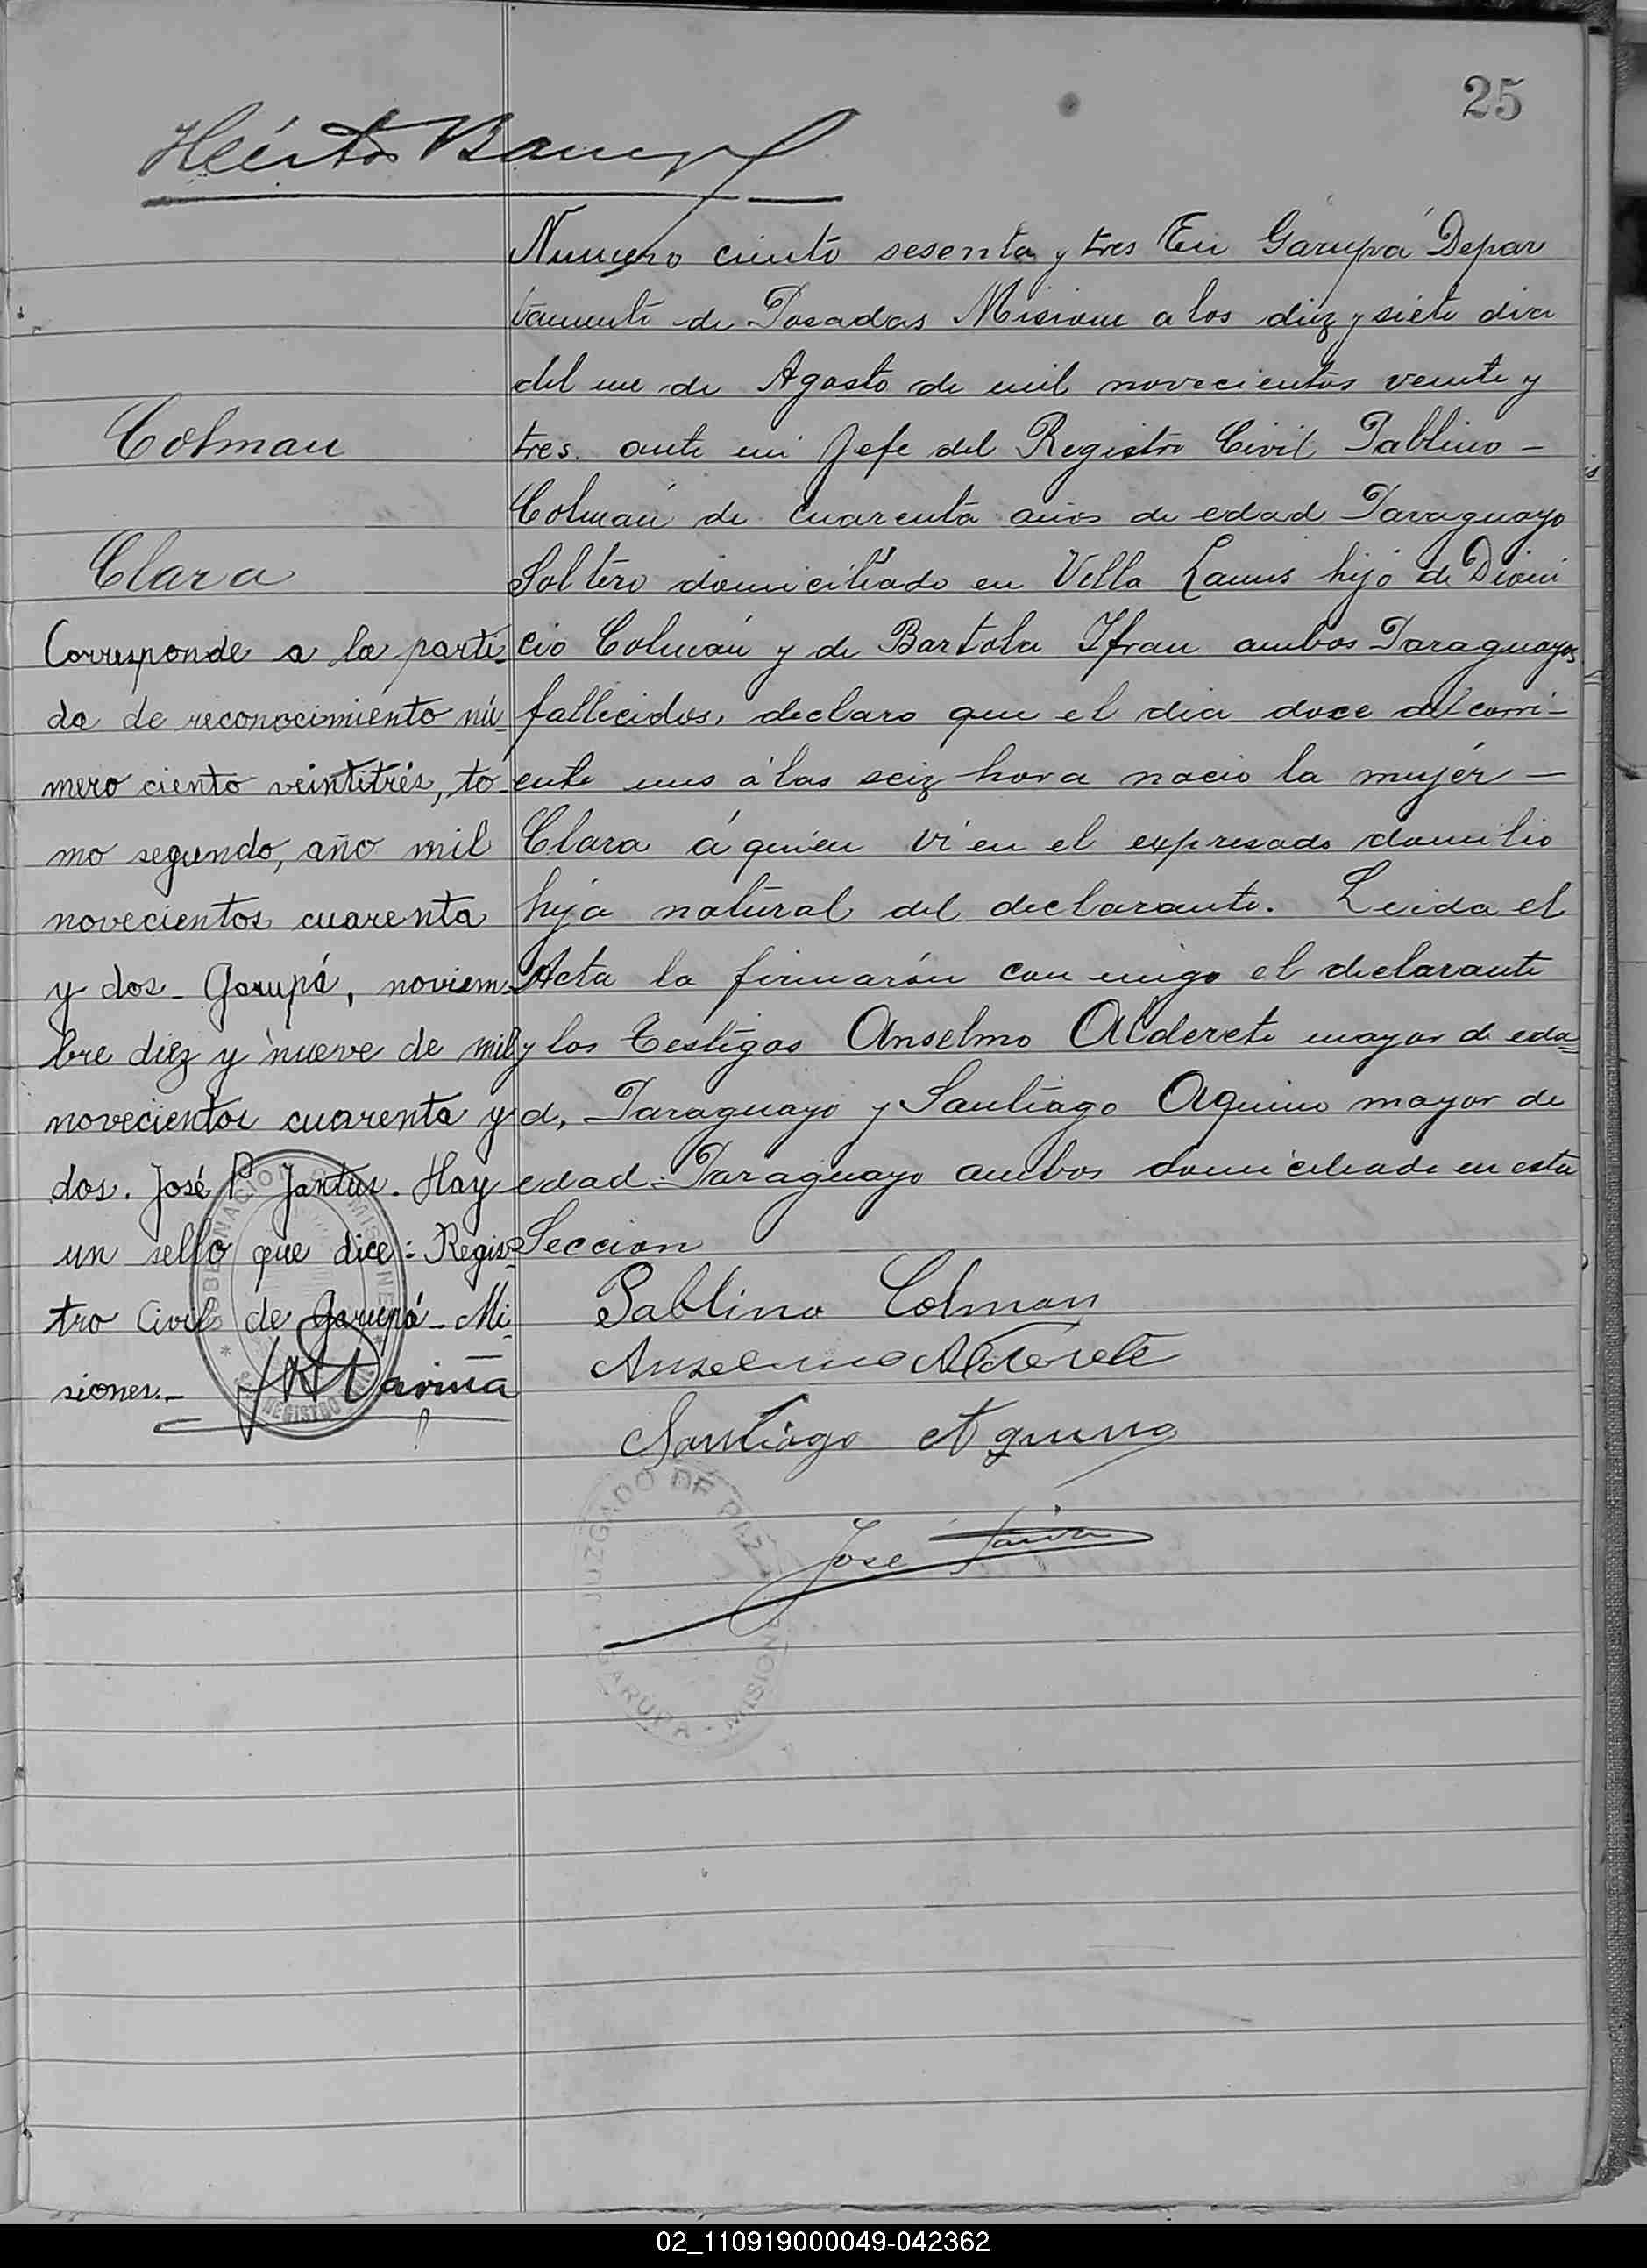 25
Numero ciento sesenta y tres En Garupá Depar
tamento de Posadas Misione a los diez y siete dia
del me de Agosto de mil novecientos veinte y
tres. ante mi Jefe del Registro Civil Pablino -
Colmán de cuarenta años de edad Paraguayo
Soltero domiciliado en Villa Lanus hijo de Dioni
cio Colmán y de Bartola Ifran ambos Paraguayos
fallecidos, declaro que el dia doce del corri-
ente mes á las seiz hora nacio la mujér -
Clara á quien vi en el expresado domilio
hija natural del declarante. Leida el
Acta la firmarón con migo el declarante
y los Testigos Anselmo Alderete mayor de eda=
d, Paraguayo y Santiago Aquino mayor de
edad Paraguayo ambos domiciliado en esta
Seccion
Pablino Colman
Anselmo Alderete
Santiago Aquino
Jose
JUZGADO DE PAZ
GARUPA - MISIONES
Colman
Clara
Corresponde a la parti-
da de reconocimiento nú-
mero ciento veintitrés, to-
mo segundo, año mil
novecientos cuarenta
y dos - Garupá, noviem-
bre diez y nueve de mil
novecientos cuarenta y
dos. José P. Jantus. Hay
un sello que dice: Regis-
tro Civil de Garupá - Mi-
siones.-
02_110919000049-042362